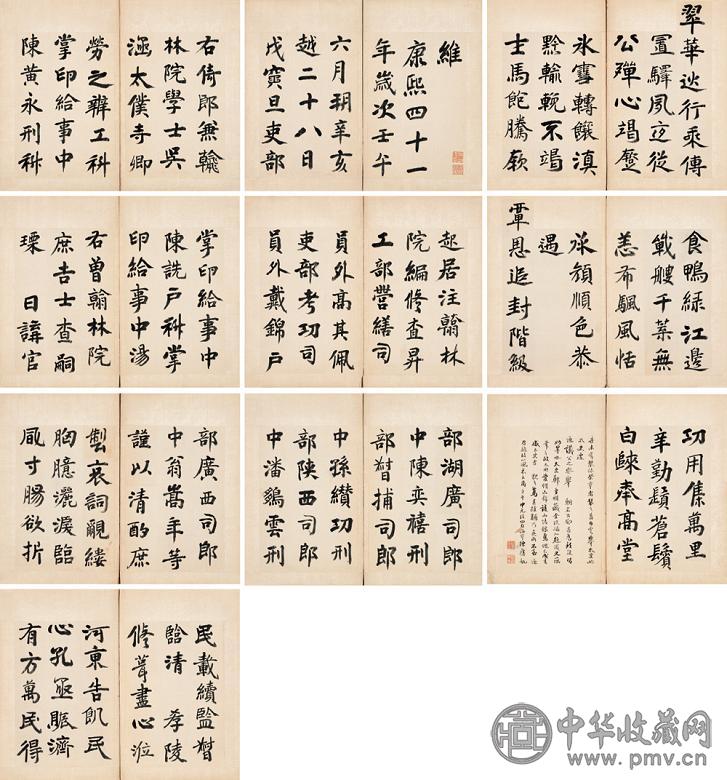 翠華巡行乘傳
置驛夙夜從
公殫心竭蹙
氷雪轉饟滇
黔輸輓不竭
士馬飽騰厥
維
康熙四十一
年歲次壬午
六月朔辛亥
越二十八日
戊寅旦吏部
右侍郎兼翰
林院學士吳
涵太僕寺卿
勞之辨工科
掌印給事中
陳黃永刑科
食鴨綠江邊
戰艘千葉無
恙布颿風恬
承顏順色恭
遇
覃恩追封階級
起居注翰林
院編修查昇
工部營繕司
員外高其佩
吏部考功司
員外戴錦戶
掌印給事中
陳詵戶科掌
印給事中湯
右曾翰林院
庶吉士查嗣
瑮 日講官
功用集萬里
辛勤鬚蒼鬢
白睞奉高堂
部湖廣司郎
中陳奕禧刑
部督捕司郎
中孫纘功刑
部陝西司郎
中潘鸝雲刑
部廣西司郎
中翁嵩年等
謹以清酌庶
製哀詞覼縷
胸臆灑淚臨
風寸腸欲折
民載續監督
臨清 孝陵
修葺盡心涖
河東告飢民
心孔亟賑濟
有方萬民得
中华收藏网
www.pmv.cn